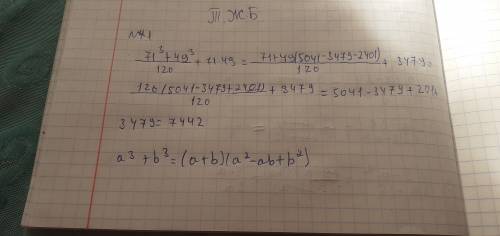 Т.Ж.Б
№1
71³+49³/120 + 71·49 = 71+49(5041-3479-2401)/120 + 3479=
120(5041-3479+2401)/120 + 3479 = 5041-3479+201+
3479=7442
a³+b³=(a+b)(a²-ab+b²)